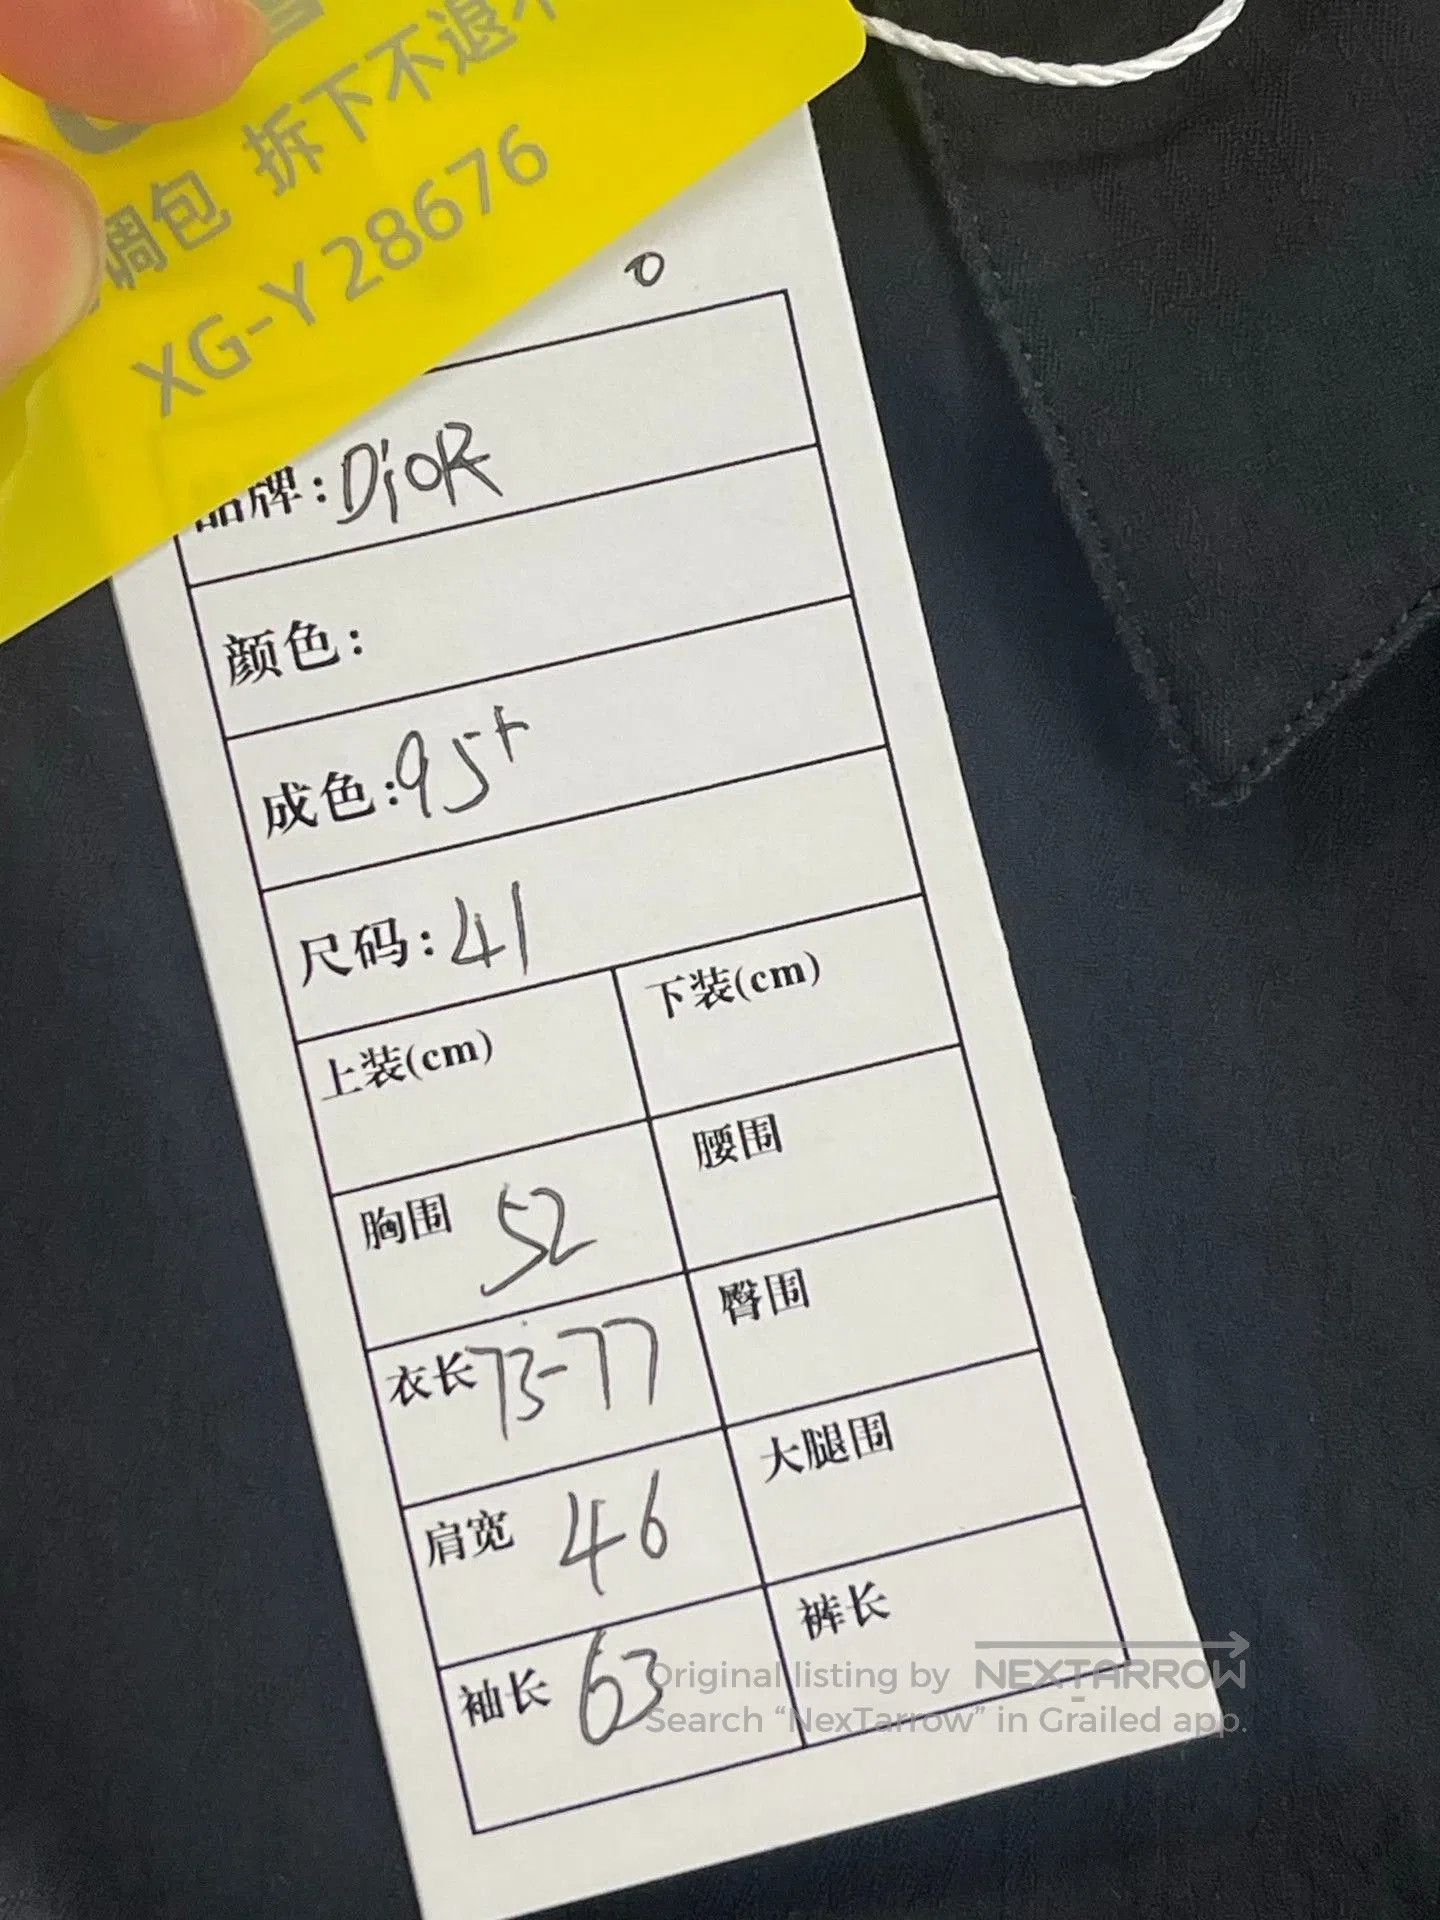 拆下不退不
调包
XG-Y28676
0
品牌:DiOR
颜色:
成色:95+
尺码:41
上装(cm) 下装(cm)
胸围 52 腰围
衣长 73-77 臀围
肩宽 46 大腿围
袖长 63 裤长
Original listing by NEXTARROW
Search “NexTarrow” in Grailed app.